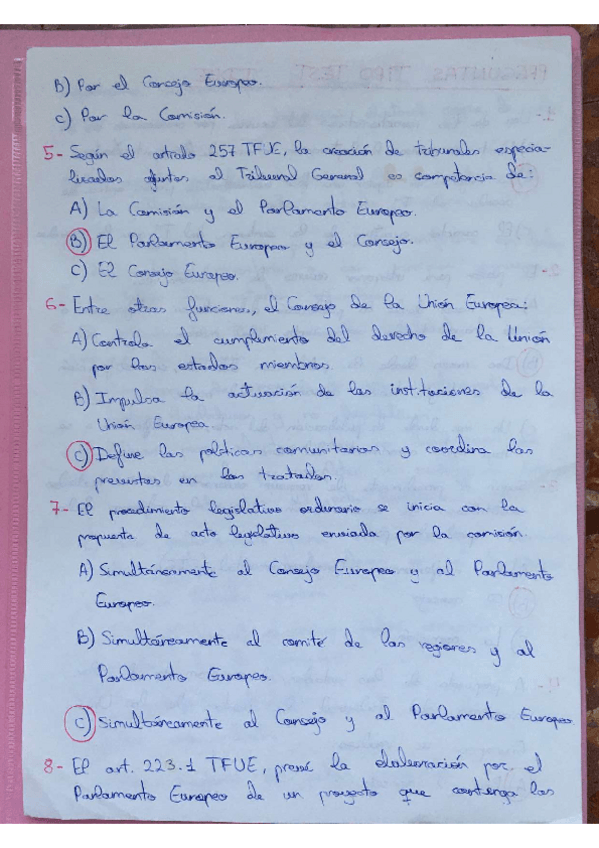 B) Por el Consejo Europeo.
C) Por la Comisión.
5- Según el artículo 257 TFUE, la creación de tribunales especia-
lizados adjuntos al Tribunal General es competencia de:
A) La Comisión y el Parlamento Europeo.
B) El Parlamento Europeo y el Consejo.
C) El Consejo Europeo.
6- Entre otras funciones, el Consejo de la Unión Europea:
A) Controla el cumplimiento del derecho de la Unión
por los estados miembros.
B) Impulsa la actuación de las instituciones de la
Unión Europea.
C) Define las políticas comunitarias y coordina las
previstas en los tratados.
7- El procedimiento legislativo ordinario se inicia con la
propuesta de acto legislativo enviada por la comisión.
A) Simultáneamente al Consejo Europeo y al Parlamento
Europeo.
B) Simultáneamente al comité de las regiones y al
Parlamento Europeo.
C) Simultáneamente al Consejo y al Parlamento Europeo
8- El art. 223.1 TFUE, prevé la elaboración por el
Parlamento Europeo de un proyecto que contenga las